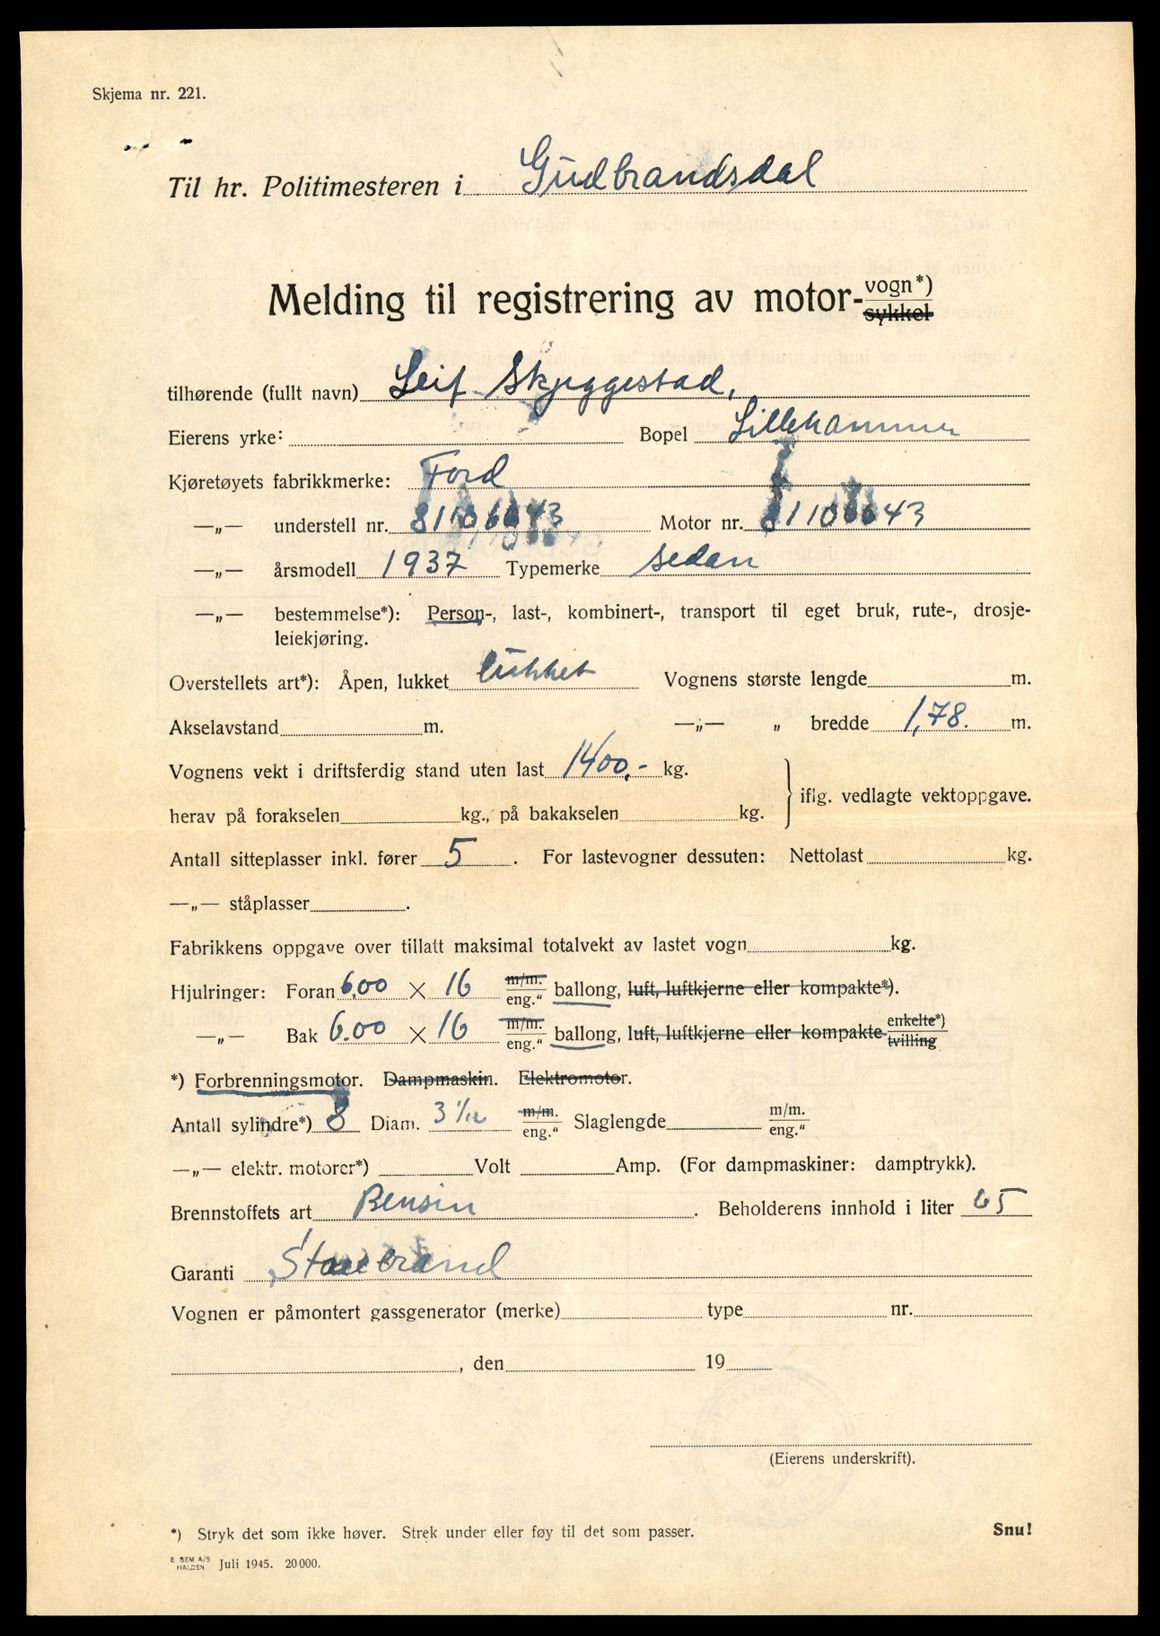 Skjema nr. 221.
Til hr. Politimesteren i Gudbrandsdal
Melding til registrering av motor-vogn*)
sykkel
tilhørende (fullt navn) Leif Skjeggestad,
Eierens yrke: Bopel Lillehammer
Kjøretøyets fabrikkmerke: Ford
—„— understell nr. Motor nr.
—„— årsmodell 1937 Typemerke sedan
—„— bestemmelse*): Person-, last-, kombinert-, transport til eget bruk, rute-, drosje-
leiekjøring.
Overstellets art*): Åpen, lukket lukket Vognens største lengde m.
Akselavstand m. —„— „ bredde 1,78. m.
Vognens vekt i driftsferdig stand uten last 1400,- kg.
iflg. vedlagte vektoppgave.
herav på forakselen kg., på bakakselen kg.
Antall sitteplasser inkl. fører 5. For lastevogner dessuten: Nettolast kg.
—„— ståplasser.
Fabrikkens oppgave over tillatt maksimal totalvekt av lastet vogn kg.
Hjulringer: Foran 6.00 × 16 m/m. eng.“ ballong, luft, luftkjerne eller kompakte*).
—„— Bak 6.00 × 16 m/m. eng.“ ballong, luft, luftkjerne eller kompakte enkelte*) tvilling
*) Forbrenningsmotor. Dampmaskin. Elektromotor.
Antall sylindre*) 8 Diam. 3 1/12 m/m. eng.“ Slaglengde m/m. eng.“
—„— elektr. motorer*) Volt Amp. (For dampmaskiner: damptrykk).
Brennstoffets art Bensin. Beholderens innhold i liter 65
Garanti Storebrand
Vognen er påmontert gassgenerator (merke) type nr.
, den 19
(Eierens underskrift).
*) Stryk det som ikke høver. Strek under eller føy til det som passer. Snu!
E SEM A/S HALDEN Juli 1945. 20000.